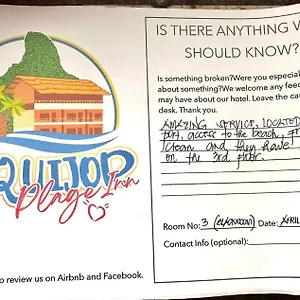 QUIJOR
Playe Inn
o review us on Airbnb and Facebook.
IS THERE ANYTHING W
SHOULD KNOW?
Is something broken?Were you especial
about something?We welcome any feed
may have about our hotel. Leave the ca
desk. Thank you.
AMAZING SERVICE, LOCATED
port, access to the beach,
clean and they have
on the 3rd floor.
Room No: 3 Date: APRIL
Contact Info (optional):